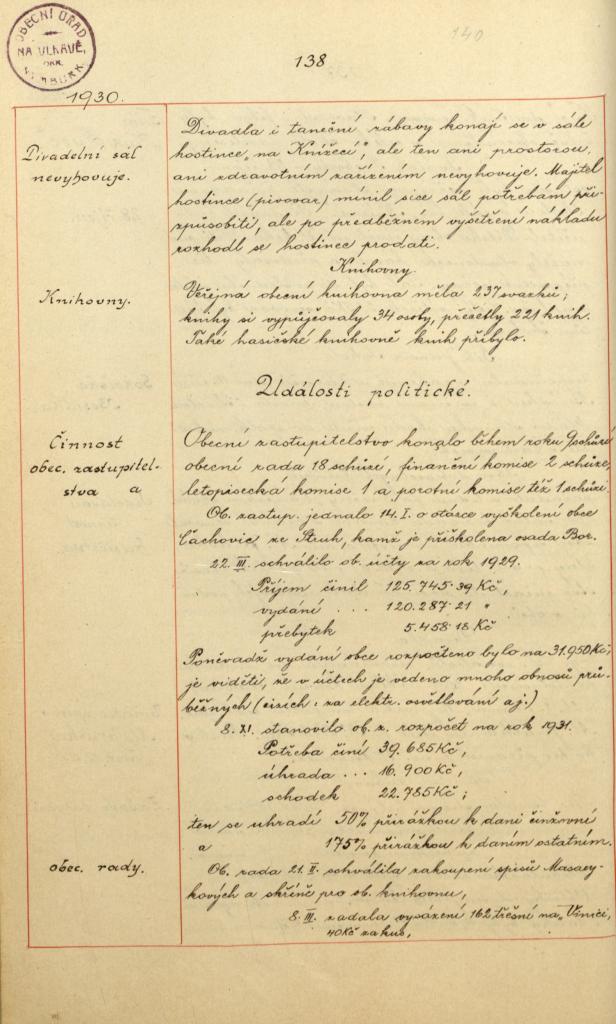 140
138
OBECNÍ ÚŘAD
NA VLKAVĚ,
OKR.
1930.
Divadelní sál
nevyhovuje.
Divadla i taneční zábavy konají se v sále
hostince „na Knížecí“, ale ten ani prostorou,
ani zdravotním zařízením nevyhovuje. Majitel
hostince (pivovar) mínil sice sál potřebám při-
způsobiti, ale po předběžném vyšetření nákladu
rozhodl se hostinec prodati.
Knihovny.
Knihovny.
Veřejná obecní knihovna měla 237 svazků;
knihy si vypůjčovaly 34 osoby, přečetly 221 knih.
Také hasičské knihovně knih přibylo.
Události politické.
Činnost
obec. zastupitel-
stva a
Obecní zastupitelstvo konalo během roku 9 schůzí
obecní rada 18 schůzí, finanční komise 2 schůze,
letopisecká komise 1 a porotní komise též 1 schůzi.
Ob. zastup. jednalo 14. I. o otázce vyškolení obce
Čachovic ze Struh, kamž je přiškolena osada Bor.
22. III. schválilo ob. účty za rok 1929.
Příjem činil 125.745·39 Kč,
vydání ... 120.287·21 "
přebytek 5.458·18 Kč
Poněvadž vydání obce rozpočteno bylo na 31.950 Kč,
je viděti, že v účtech je vedeno mnoho obnosů prů-
běžných (cizích: za elektr. osvětlování aj.)
8. XI. stanovilo ob. z. rozpočet na rok 1931.
Potřeba činí 39.685 Kč,
úhrada ... 16.900 Kč,
schodek 22.785 Kč;
ten se uhradí 50% přirážkou k dani činžovní
a 175% přirážkou k daním ostatním.
obec. rady.
Ob. rada 21. II. schválila zakoupení spisů Masary-
kových a skříně pro ob. knihovnu,
8. III. zadala vysázení 162 třešní na „Vinici,
40 Kč za kus,